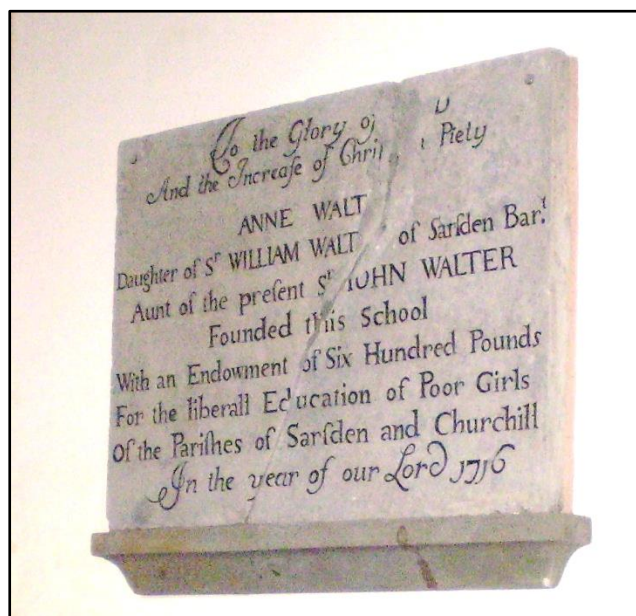 To the Glory of
And the Increaſe of Piety
ANNE
Daughter of Sʳ WILLIAM of Sarſden Barᵗ
Aunt of the preſent Sʳ IOHN WALTER
Founded this School
With an Endowment of Six Hundred Pounds
For the liberall Education of Poor Girls
Of the Pariſhes of Sarſden and Churchill
In the year of our Lord 1716